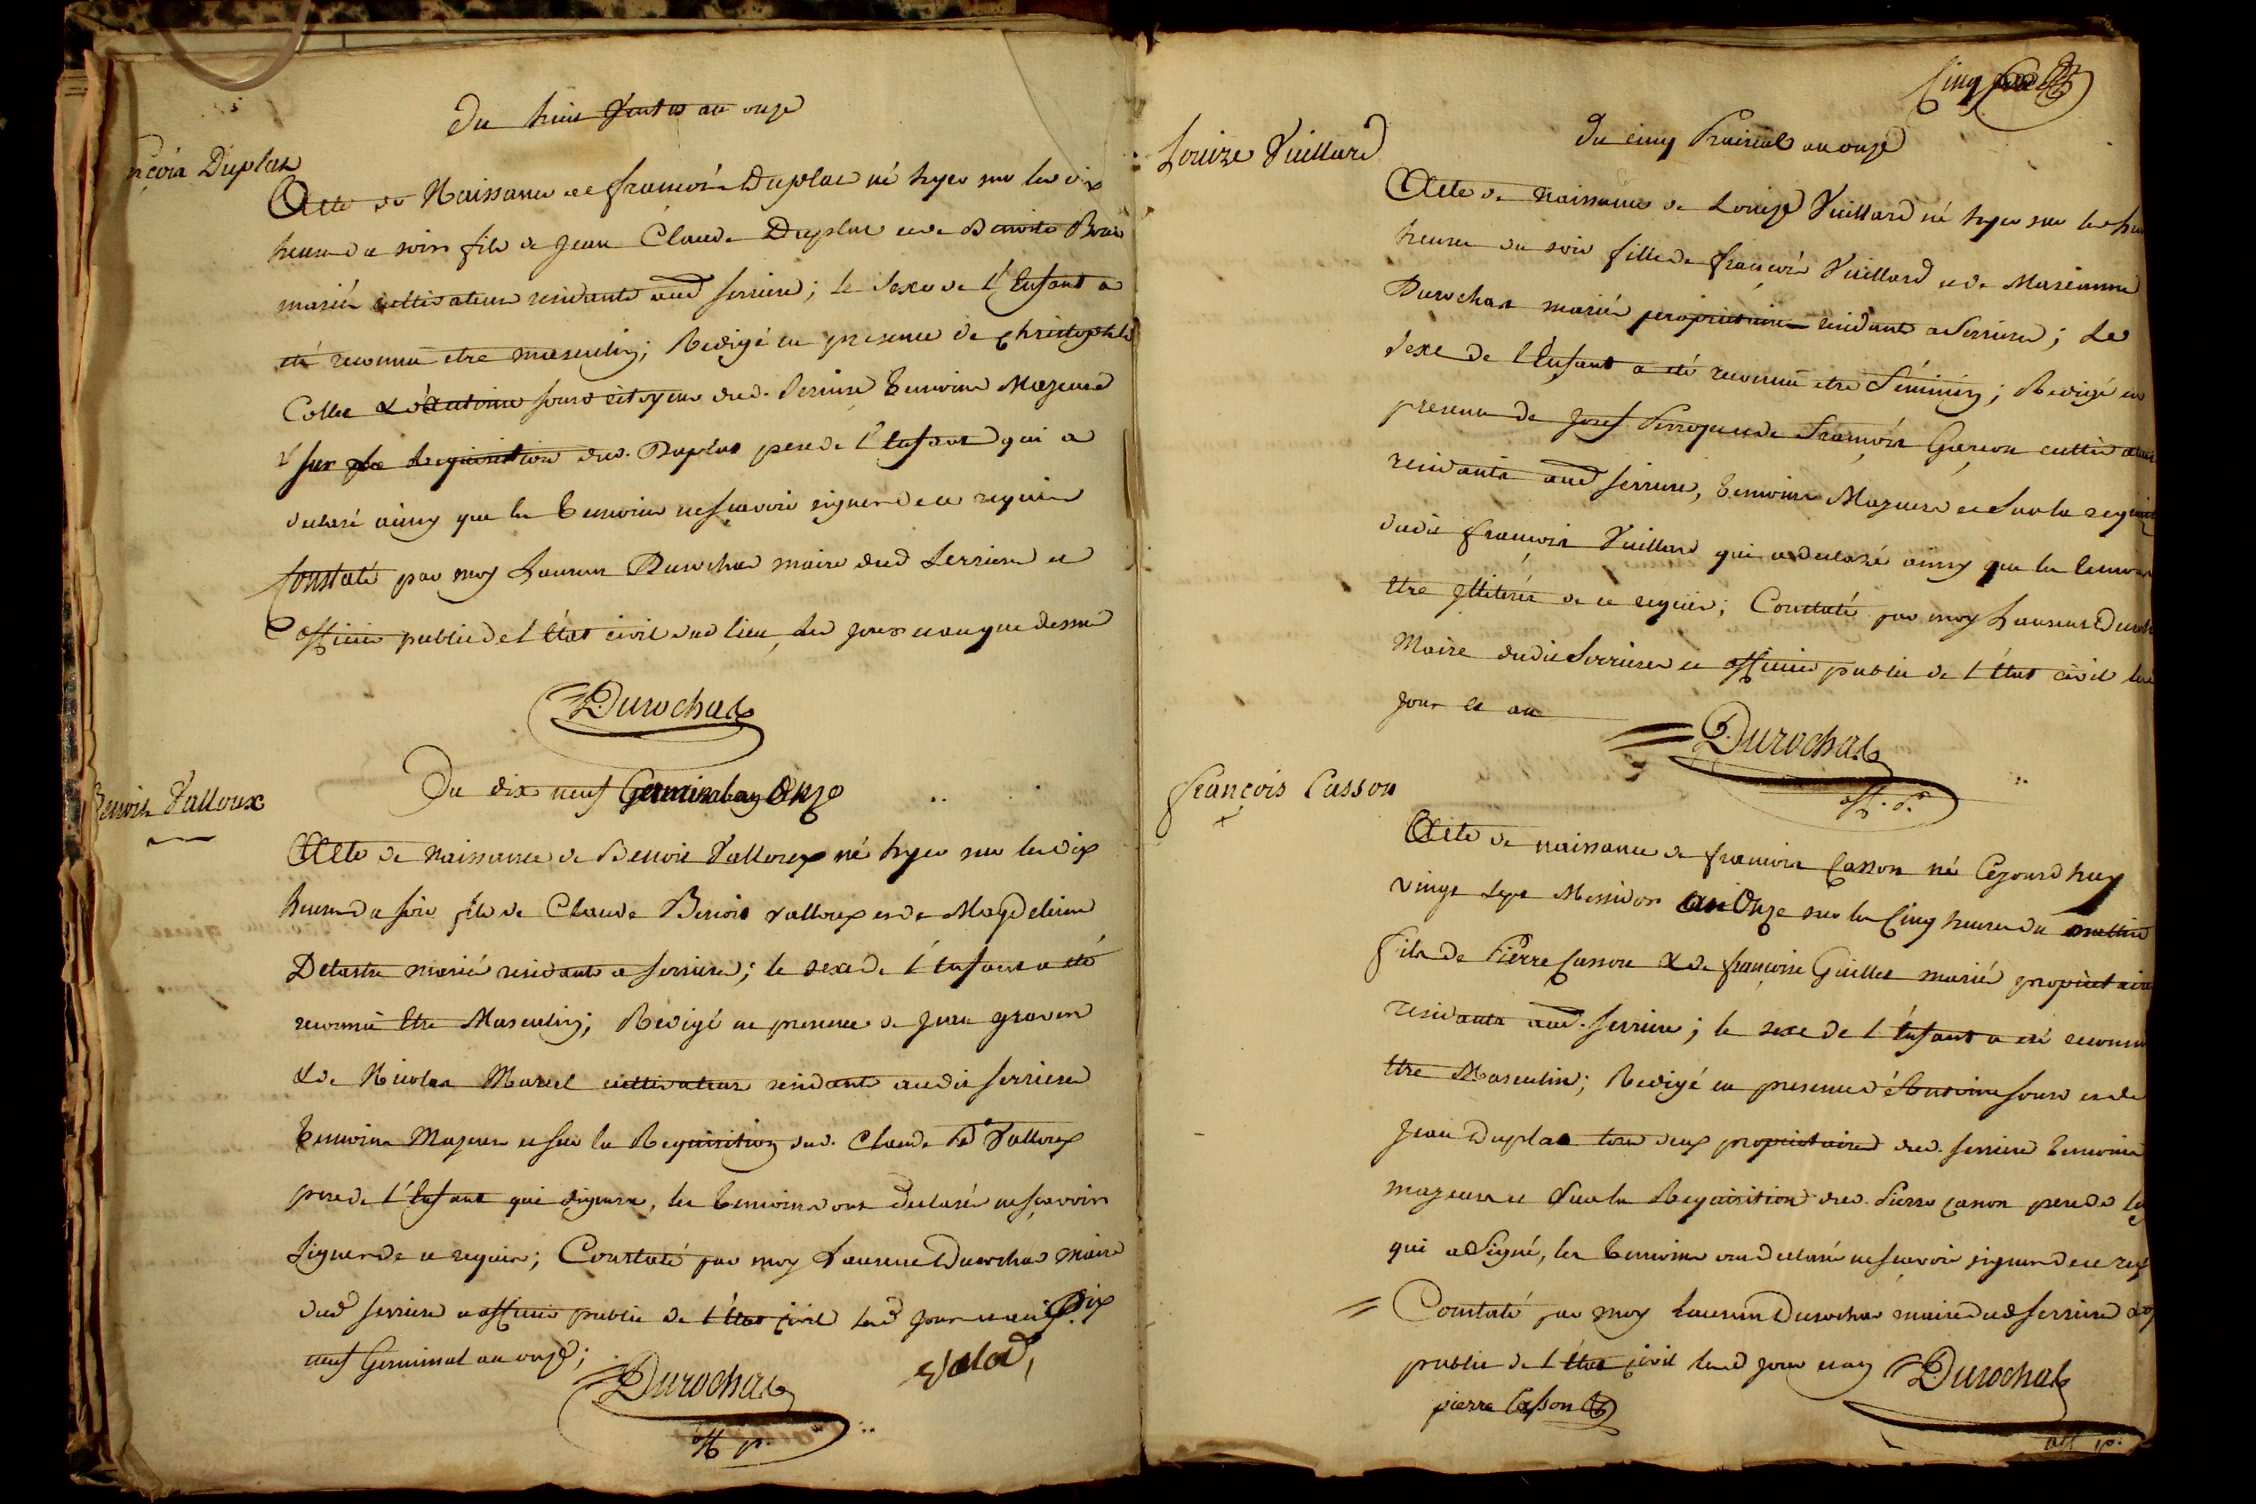 Du huit Ventos an onze
nçois Duplat
Acte de Naissance de francois Duplat né hyer sur les dix
heures du soir fils de Jean Claude Duplat et de Benoite
mariés cultivateurs residants aud serriere; le sexe de l'Enfant a
été reconnu etre masculin; Redigé en presence de christophle
Collet & d'Antoine sourd citoyens dud. serriere temoins Majeurs
& sur la Requisition dud. Duplat pere de l'Enfant qui a
declaré ainsy que les temoins ne scavoir signer de ce requis
Constaté par moy Laurent Durochat maire dud serriere et
officier public de l'état civil dud lieu, les jour et an que dessus
Durochat
Du dix neuf Germinal an Onze
Benoit Valloux
Acte de naissance de Benoit Valloux né hyer sur les dix
heures du soir fils de Claude Benoit valloux et de Magdeleine
Delastre mariés residants a serriere; le sexe de l'Enfant a été
reconnu Etre Masculin; Redigé en presence de Jean
& de Nicolas Marcel cultivateurs residants audit serriere
temoins Majeurs et sur la Requisition dud. Claude Bt Valloux
pere de l'Enfant qui signera, les temoins ont declaré ne scavoir
signer de ce requis; Constaté par moy Laurent Durochat maire
dud serriere et officier public de l'état civil led jour et an Dix
neuf Germinal an onze;
Durochat
off p.
Cinq
Du cinq Prairial an onze
Louize Vuillard
Acte de naissance de Louize Vuillard né hyer sur les
heures du soir fille de françois Vuillard et de Marianne
Durochat mariés proprietaires residants a Serriere; Le
sexe de l'Enfant a été reconnu etre Féminin; Redigé en
presence de Josef Perroquet de François Garcon
residants aud serriere, temoins Majeurs et sur la
dudit françois Vuillard qui a declaré ainsy que les
Etre illiterés de ce requis; Constaté par moy Laurent
Maire dudit Serriere et officier public de l'état civil les
jour et an
Durochat
off. p.
françois Casson
Acte de naissance de francois Casson né Cejourdhuy
vingt sept Messidor an Onze sur les Cinq heures du mattin
fils de Pierre Casson & de françoise Guillet mariés proprietaires
residants aud. serriere; le sexe de l'Enfant a été reconnu
Etre Masculin; Redigé en presence d'Antoine sourd et de
Jean Duplat tous deux proprietaires dud. serriere temoins
majeurs et sur la Requisition dud. Pierre Casson pere de
qui a Signé, les temoins ont declaré ne scavoir signer de ce
Constaté par moy Laurent Durochat maire dud serriere
public de l'état civil led jour et an
Durochat
pierre Casson
off p.